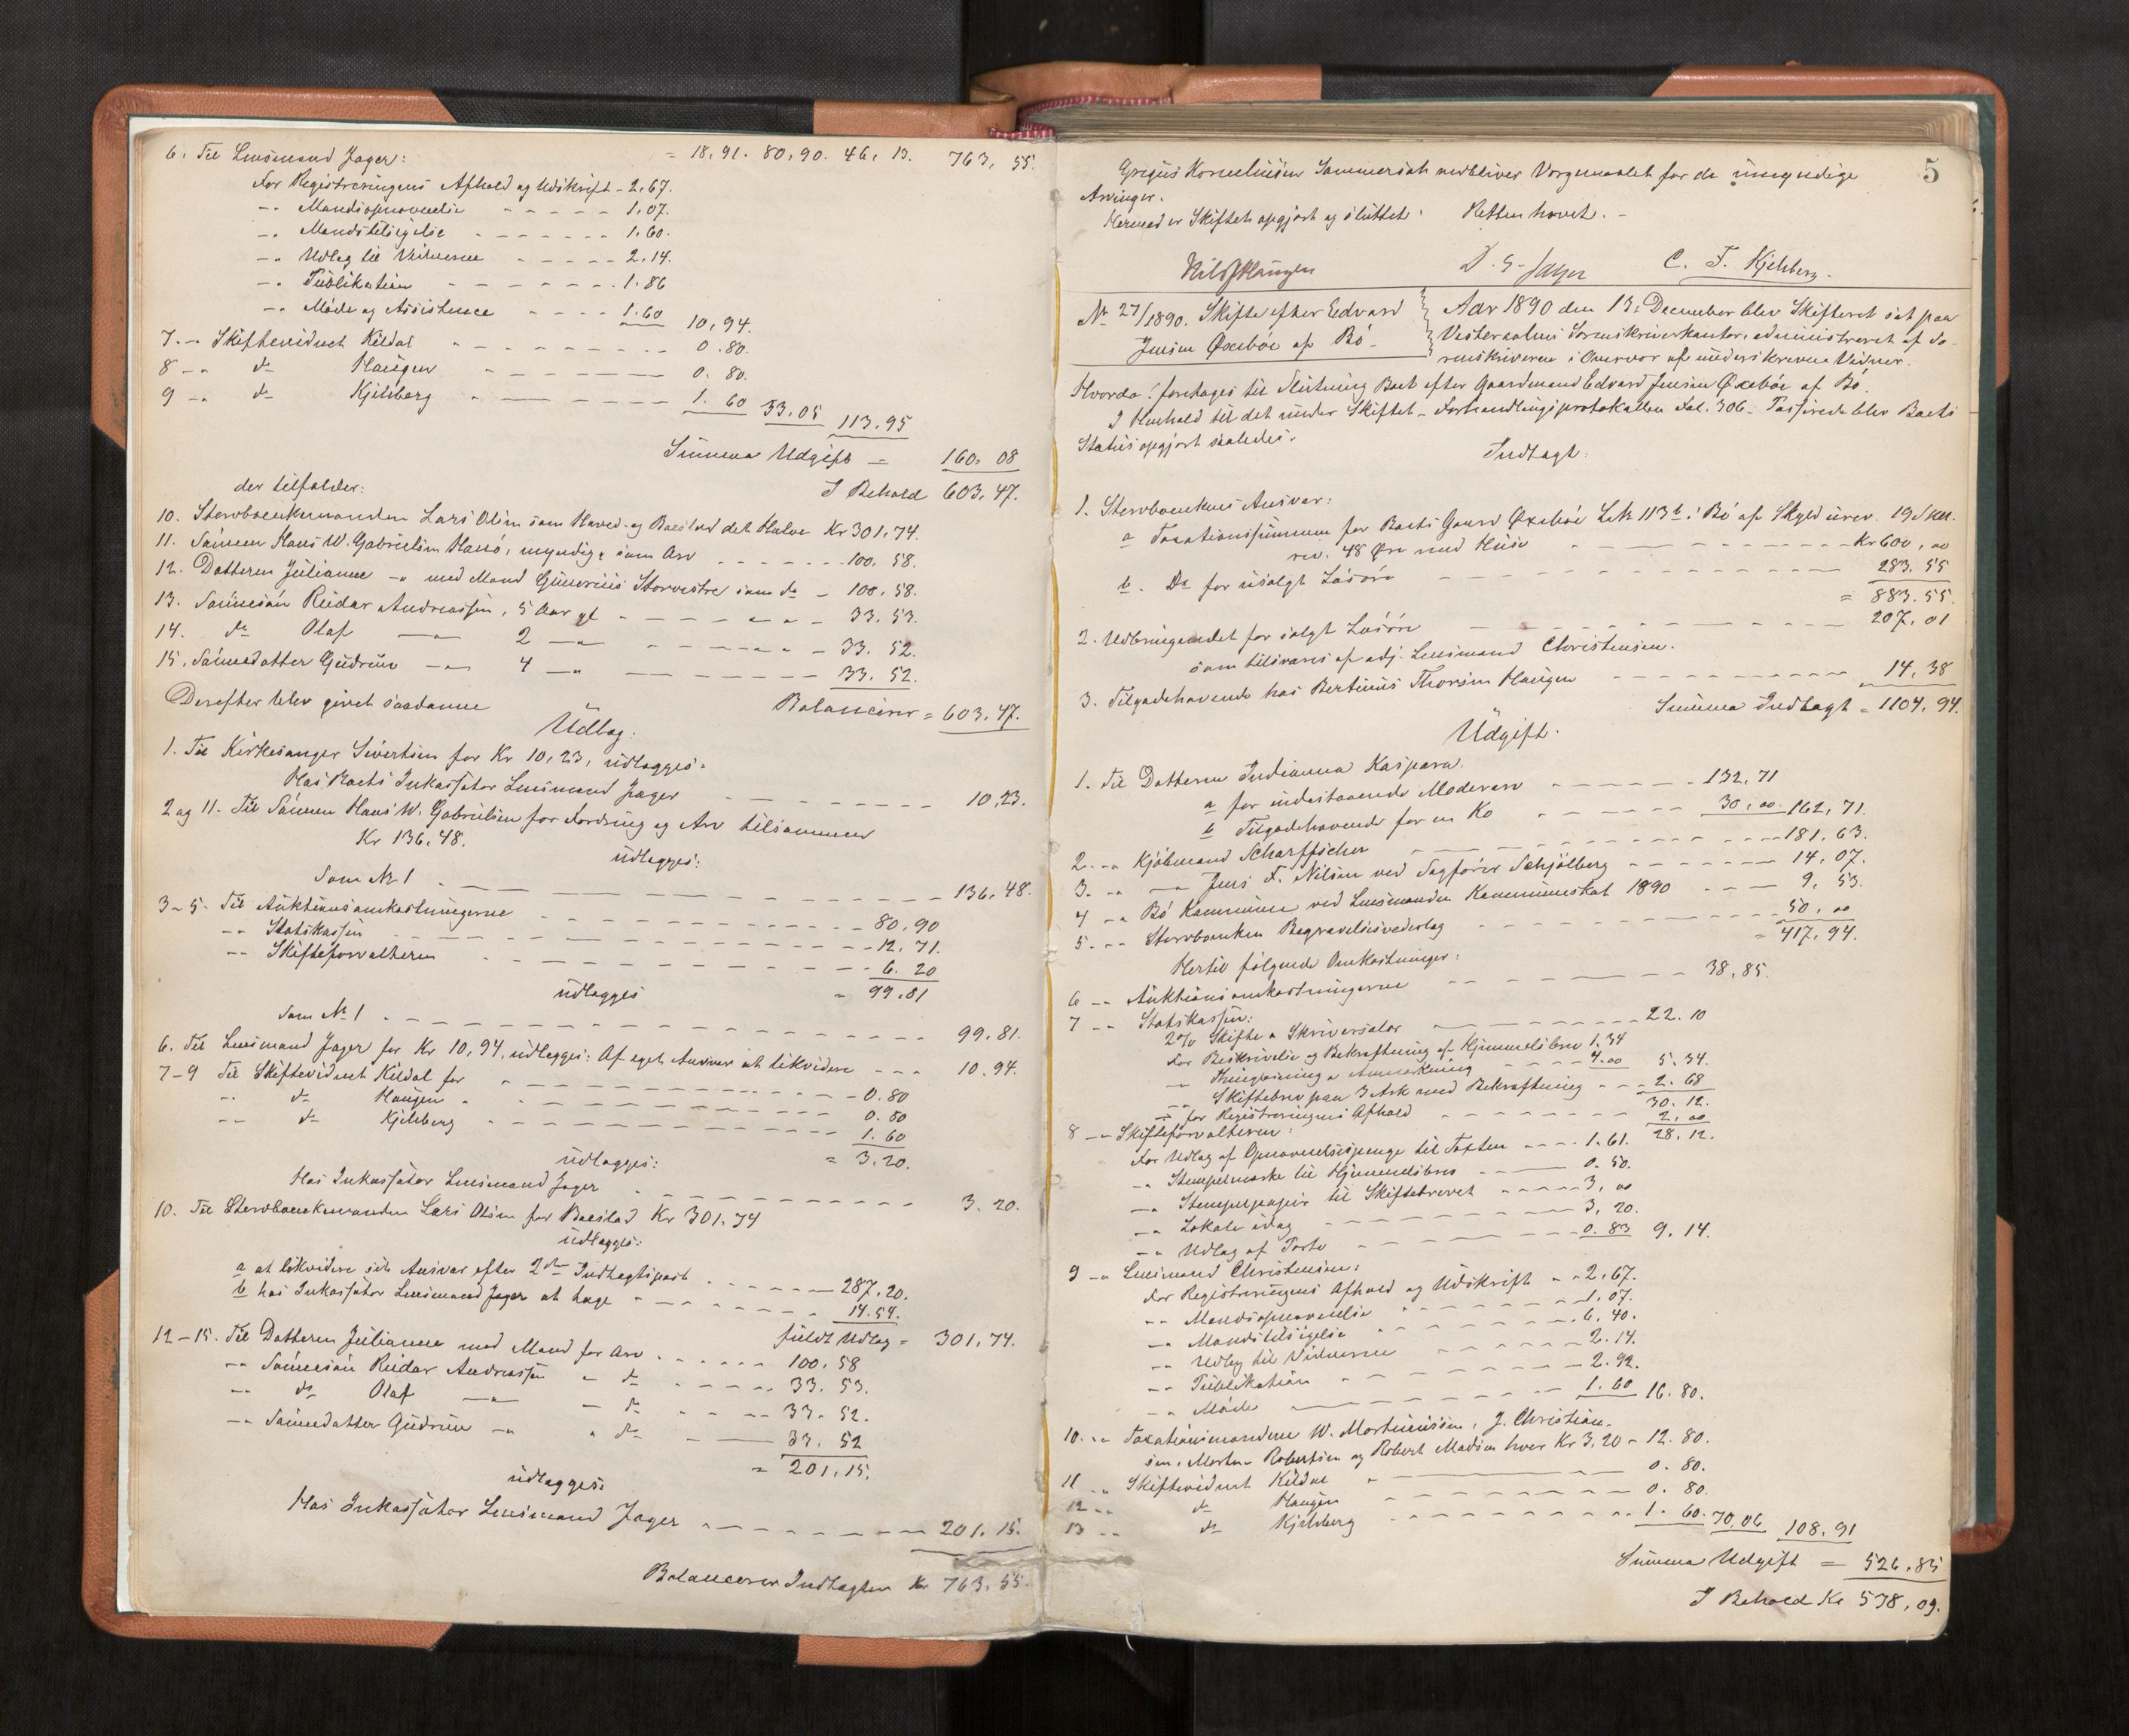 6. Til Lensmand Jager: = 18,91. 80,90. 46,13. 763,55.
For Registreringens Afhold og Udskrift - 2,67.
-"- Mandsopnævnelse - - - - - 1,07.
-"- Mandstilsigelse - - - - - 1,60.
-"- Udlæg til Vidnerne - - - - - 2,14.
-"- Publikation - - - - - 1.86
-"- Møde og Assistence - - - - 1.60 10,94.
7. -"- Skiftevidnet Kildal - - - - - 0.80.
8 -"- do Haugen - - - - - 0.80.
9 -"- do Kjelsberg - - - - - 1.60 33,05 113,95
Summa Udgift = 160,08
I Behold 603,47.
der tilfalder:
10. Stervboenkemanden Lars Olsen som Hoved- og Boeslod det Halve Kr 301,74.
11. Sønnen Hans W. Gabrielsen , myndig, som Arv - - - - - 100,58.
12. Datteren Julianne -"- med Mand Gunerius Storvestre som do - 100,58.
13. Sønnesøn Reidar Andreassen, 5 Aar gl - - - - - 33.53.
14. do Olaf -"- 2 -"- - - - - - 33.52.
15. Sønnedatter Gudrun -"- 4 -"- - - - - - 33.52.
Balancerer = 603,47.
Derefter blev givet saadanne
Udlæg:
1. Til Kirkesanger Sivertsen for Kr 10,23, udlægges:
Hos Boets Inkassator Lensmand Jager - - - - - 10,23.
2 og 11. Til Sønnen Hans W. Gabrielsen for Fordring og Arv tilsammen
Kr 136,48. udlægges:
Som No 1 - - - - - 136,48.
3-5. Til Auktionsomkostningerne - - - - - 80,90
-"- Statskassen - - - - - 12,71.
-"- Skifteforvalteren - - - - - 6.20
udlægges = 99.81
Som No 1 - - - - - 99.81.
6. Til Lensmand Jager for Kr 10,94, udlægges: Af eget Ansvar at likvidere - - - 10.94.
7-9 Til Skiftevidnet Kildal for - - - - - 0.80
-"- do Haugen " - - - - - 0.80
-"- do Kjelsberg - - - - - 1.60
udlægges: = 3.20.
Hos Inkassator Lensmand Jager - - - - - 3.20.
10. Til Stervboenkemanden Lars Olsen for Boeslod Kr 301.74
udlægges:
a at likvidere sit Ansvar efter 2den Indtægtspost - - - - - 287,20.
b hos Inkassator Lensmand Jager at hæve - - - - - 14.54.
fuldt Udlæg = 301,74.
12-15. Til Datteren Julianne med Mand for Arv - - - - - 100,58
-"- Sønnesøn Reidar Andreassen - do - - - - - 33.53.
-"- do Olaf -"- - do - - - - - 33.52.
-"- Sønnedatter Gudrun -"- " do - - - 33.52
= 201,15.
udlægges:
Hos Inkassator Lensmand Jager - - - - - 201.15.
Balancerer Indtægten Kr 763,55.
5
Grigus Kornelinssen Sommersæt vedbliver Vergemaalet for de umyndige
Arvinger.
Hermed er Skiftet opgjort og sluttet. Retten hævet. -
D. G. Jager C. F. Kjelsberg.
No 27/1890. Skifte efter Edvard
Jensen Øxebøe af Bø.
Aar 1890 den 13. December blev Skifteret sat paa
Vesteraalens Sorenskriverkontor, administreret af So-
renskriveren i Overvær af underskrevne Vidner.
Hvorda: foretages til Slutning Boet efter Gaardmand Edvard Jensen Øxebøe af Bø.
I Henhold til det under Skiftet - Forhandlingsprotokollen Fol. 306 - Passerede blev Boets
Status opgjort saaledes.
Indtægt:
1. Stervboenkens Ansvar:
a Taxationssummen for Boets Gaard Øxebøe Lnr. 113b i Bø af Skyld urev. 19 Skill.
rev. 48 Øre med Huse - - - - - Kr 600,00
b. Do for usolgt Løsøre - - - - - 283.55
= 883.55.
2. Udbringendet for solgt Løsøre - - - - - 207,01
som tilsvares af adj. Lensmand Christensen.
3. Tilgodehavende hos Bertinus Thorsen Haugen - - - - - 14,38
Summa Indtægt = 1104,94.
Udgift.
1. Til Datteren Indianna Kaspara.
a for indestaaende Moderarv - - - - - 132,71
b Tilgodehavende for en Ko - - - - - 30,00 162,71.
2. -"- Kjøbmand Scharffscher - - - - - 181,63.
3. -"- -"- Jens F. Nilsen ved Sagfører Schjølberg - - - - - 14,07.
4 -"- Bø Kommune ved Lensmanden Kommuneskat 1890 - - - 9,53.
5. -"- Stervboenken Begravelsesvederlag - - - - - 50,00
= 417,94.
Hertil følgende Omkostninger:
6 -"- Auktionsomkostningerne - - - - - 38,85.
7 -"- Statskassen:
2% Skifte & Skriversalær - - - - - 22.10
For Beskrivelse og Bekræftning af Hjemmelsbrev 1.34
-"- Thinglæsning & Anmærkning - - - 4.00 5.34.
-"- Skiftebrev paa 3 Ark med Bekræftning - - - 2.68
30.12.
÷ for Registreringens Afhold - - - - - 2,00
28,12.
8 -"- Skifteforvalteren:
For Udlæg af Opnævnelsespenge til Taxten - - - - 1.61.
-"- Stempelmærke til Hjemmelsbrev - - - - 0.50.
-"- Stempelpapir til Skiftebrevet - - - - 3,00
-"- Lokale idag - - - - - 3,20.
-"- Udlæg af Porto - - - - - 0.83 9.14.
9 -"- Lensmand Christensen:
For Registreringens Afhold og Udskrift - - 2,67.
-"- Mandsopnævnelse - - - - - 1,07.
-"- Mandstilsigelse - - - - - 6,40.
-"- Udlæg til Vidnerne - - - - - 2.14.
-"- Publikation - - - - - 2.92.
-"- Møde - - - - - 1.60 16.80.
10. -"- Taxationsmændene W. Mortinussen, J. Christian-
sen, Morten Robertsen og Robert Madsen hver Kr 3,20 - 12.80.
11 -"- Skiftevidnet Kildal - - - - - 0.80.
12 -"- do Haugen - - - - - 0.80.
13 -"- do Kjelsberg - - - - - 1.60. 70,06 108,91
Summa Udgift = 526,85
I Behold Kr 578,09.